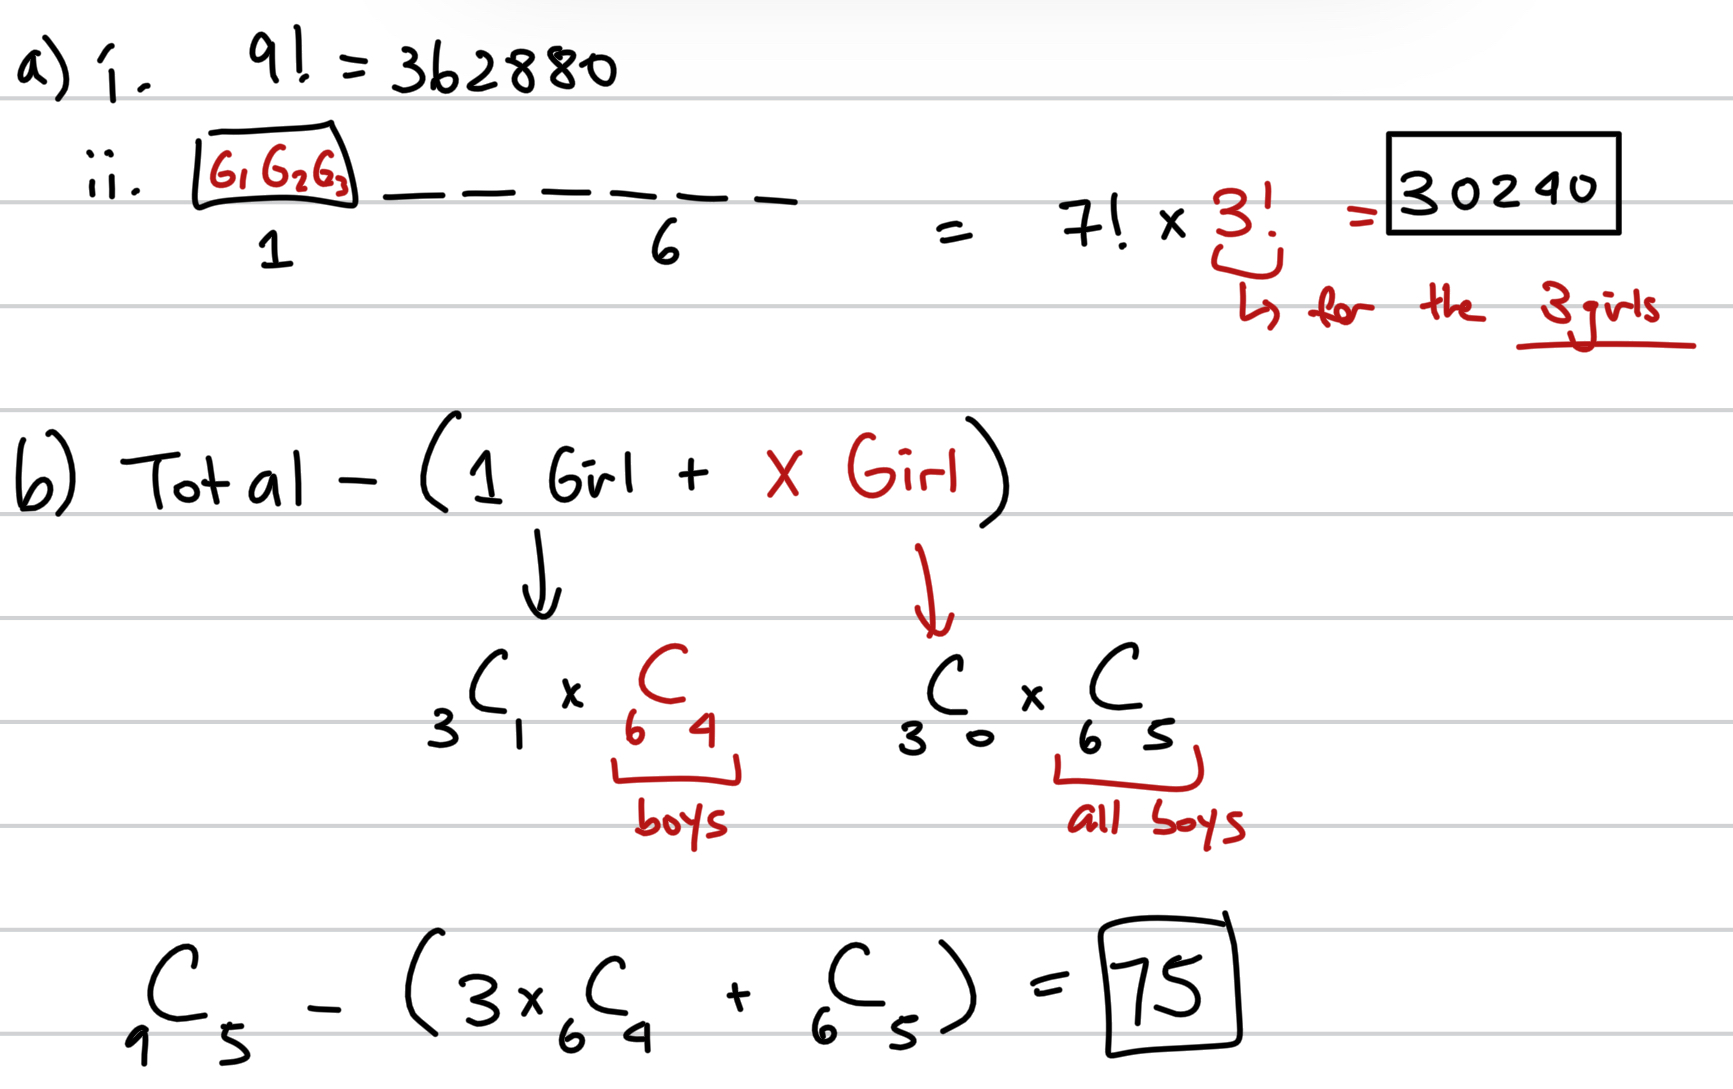 a) i. 9! = 362880
ii. G1 G2 G3 _ _ _ _ _ _ = 7! × 3! = 30240
1 6
↳ for the 3 girls
b) Total - (1 Girl + X Girl)
↓ ↓
3C1 × 6C4 3C0 × 6C5
boys all boys
9C5 - (3 × 6C4 + 6C5) = 75